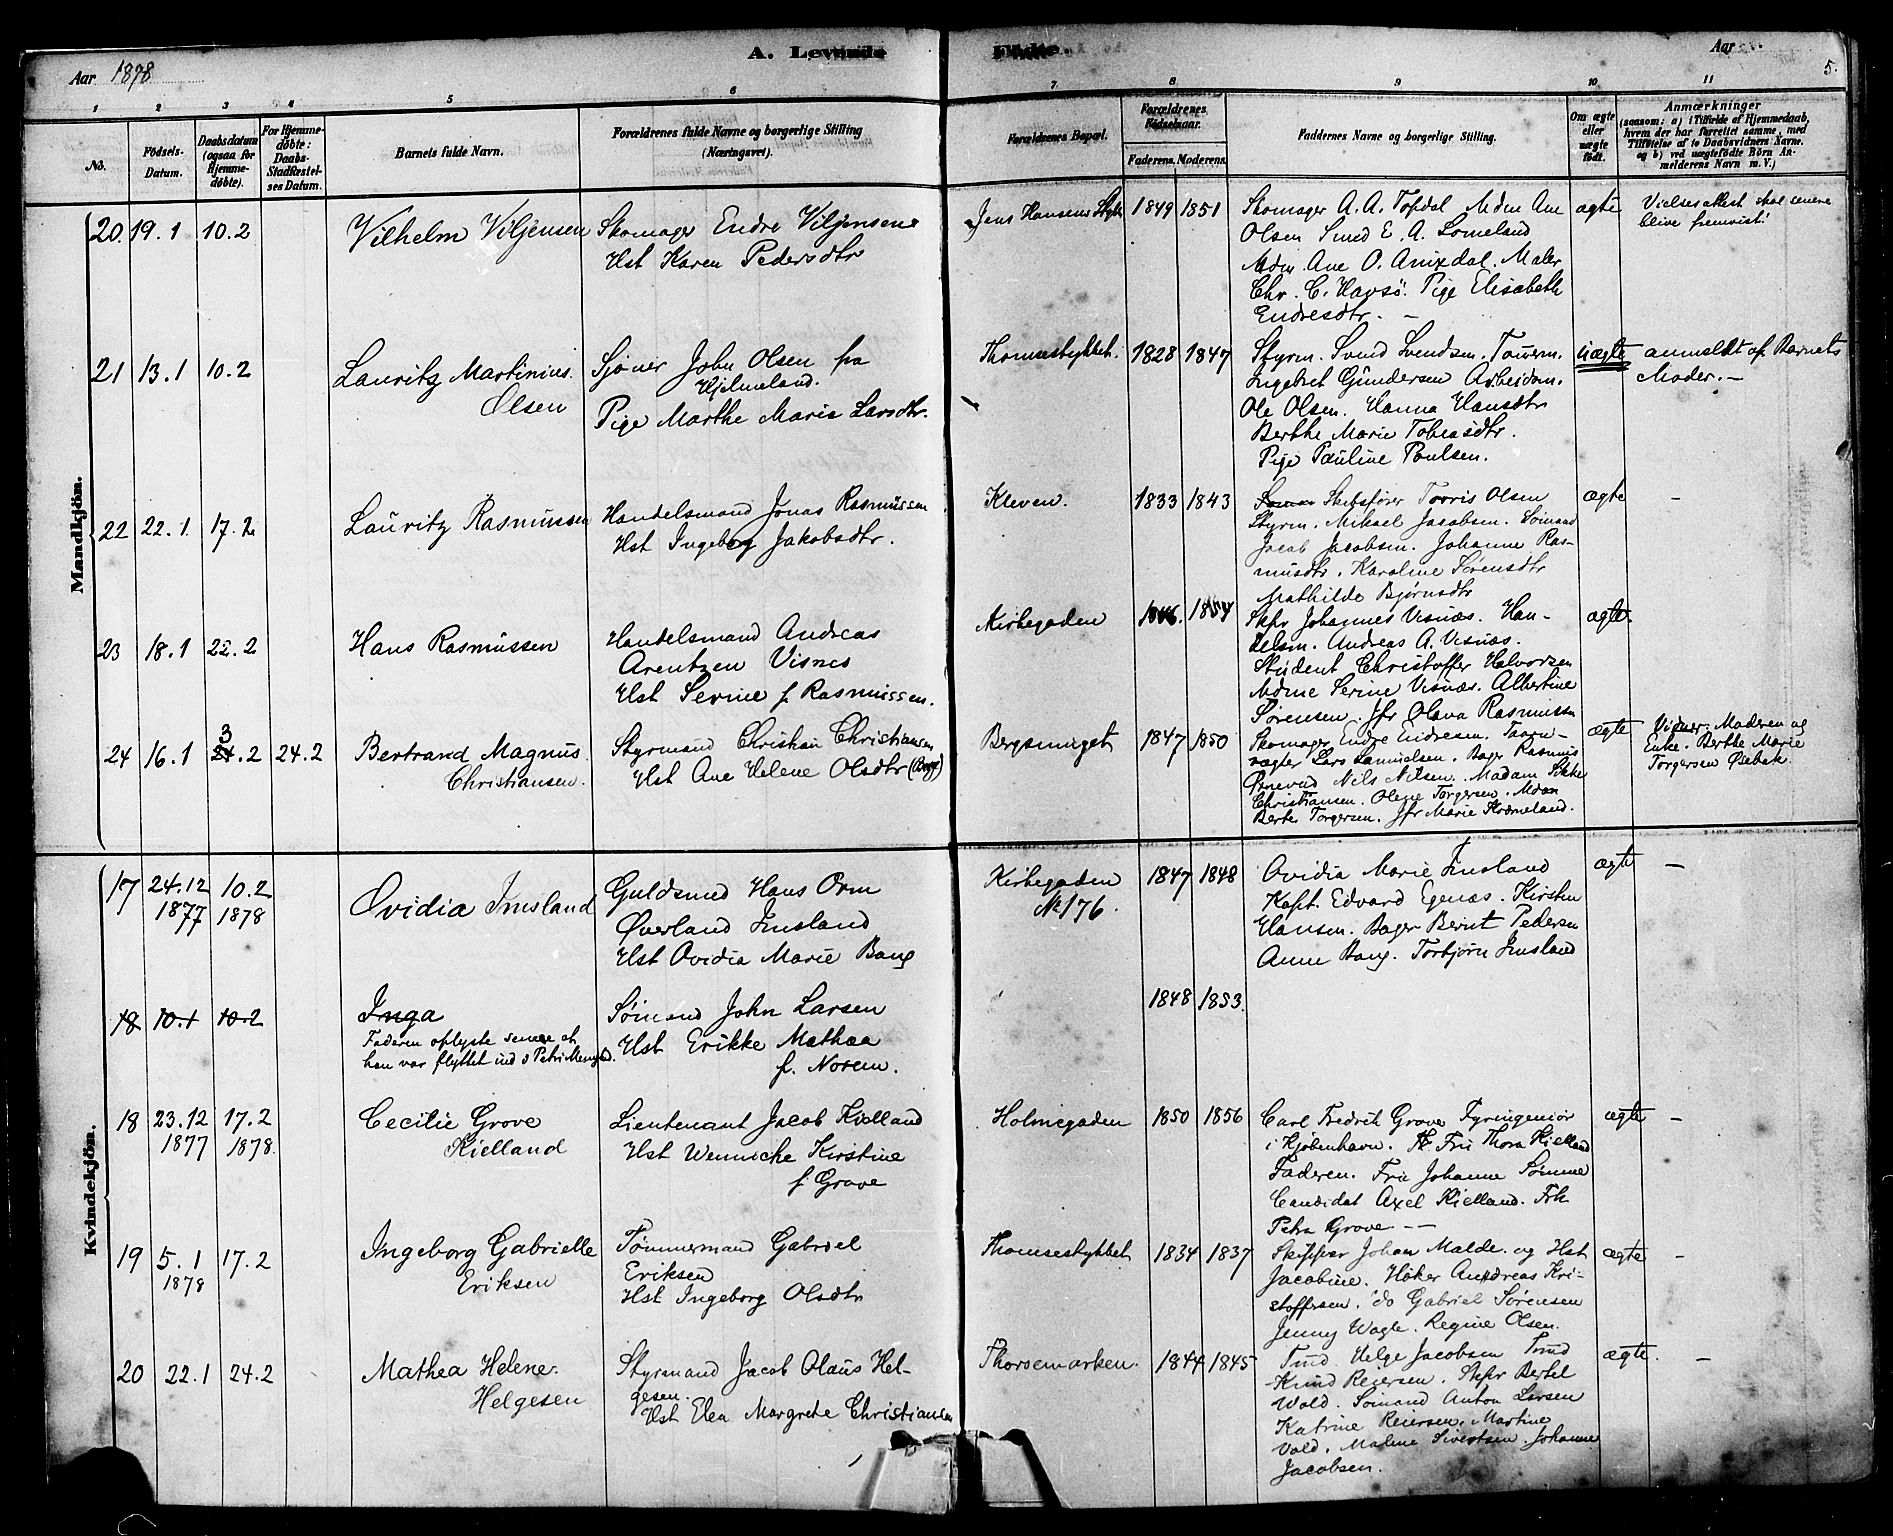 A. Levende Fødte.
Aar 1878
Aar
5.
1 2 3 4 5 6 7 8 9 10 11
No.
Fødsels-Datum.
Daabsdatum (ogsaa for Hjemmedøbte).
For Hjemmedøbte: Daabs-Stadfæstelses Datum.
Barnets fulde Navn.
Forældrenes fulde Navne og borgerlige Stilling (Næringsvei).
Forældrenes Bopæl.
Forældrenes Fødselsaar.
Faderens. Moderens.
Faddernes Navne og borgerlige Stilling.
Om ægte eller uægte født.
Anmærkninger
(saasom: a) i Tilfælde af Hjemmedaab,
hvem der har forrettet samme, med
Tilføielse af to Daabsvidners Navne.
og b) ved uægtefødte Børn Anmelderens Navn m. V.)
Mandkjön.
20. 19.1 10.2
Vilhelm Viljensen
Skomager Endre Viljensen
Hst Karen Pedersdtr
Jens Hansens Stykke
1849 1851
Skomager A. A. Topdal Mdm Ane
Olsen Smed E. A. Lomeland
Mdm. Ane O. Amdal. Maler
Chr. C. Havsö. Pige Elisabeth
Endresdtr. —
ægte
Vielsesattest skal senere
blive fremvist!
21 13.1 10.2
Lauritz Martinius
Olsen
Sjöner John Olsen fra
Hjelmeland.
Pige Marthe Marie Larsdtr.
Thomsestykket.
1828 1847
Styrm. Svend Svendsen. Tömrm.
Ingebret Gundersen Arbeidsm.
Ole Olsen. Hanna Hansdtr
Berthe Marie Tobiasdtr.
Pige Pauline Poulsen.
uægte
anmeldt af Barnets
Moder. —
22 22.1 17.2
Lauritz Rasmussen
Handelsmand Jonas Rasmussen
Hst Ingeborg Jakobsdtr.
Kleven.
1833 1843
Skibsförer Torris Olsen
Styrm. Mikael Jacobsen. Sömand
Jacob Jacobsen. Johanne Ras-
musdtr. Karoline Sörensdtr
Mathilde Bjørnsdtr
ægte
—
23 18.1 22.2
Hans Rasmussen
Handelsmand Andreas
Arentzen Visnes
Hst Serine f. Rasmussen.
Kirkegaden
1846. 1854
Skpr Johannes Visnæs. Han-
delsm. Andreas A. Visnæs.
Student Christoffer Halvorsen
Mdme Serine Visnæs. Albertine
Sørensen. Jfr Olava Rasmussen
ægte.
24 16.1 3 24.2 24.2
Bertrand Magnus
Christiansen.
Styrmand Christian Christiansen
Hst Ane Helene Olsdtr
Bergsmuget
1847 1850
Skomager Endre Endresen. Taarn-
vægter Lars Samuelsen. Bager Rasmus
Nils Nilsen. Madam Sikke
Christiansen. Olene Torgersen. Mdm
Berte Torgersen. Jfr Marie
ægte
Vidner. Moderen og
Enke. Berthe Marie
Torgersen
Kvindekjön.
17 24.12 1877 10.2 1878
Ovidia Imsland
Guldsmed Hans Orm
Øverland Imsland
Hst Ovidia Marie Bang
Kirkegaden
No 176.
1847 1848
Ovidia Marie Imsland
Kapt. Edvard Egenæs. Kirsten
Hansen. Bager Bernt Pedersen
Anne Bang. Torbjörn Imsland
ægte
—
18 10.1 10.2
Inga
Faderen oplyste senere at
han var flyttet ind i Petri Menighed.
Sömand John Larsen
Hst Erikke Mathea
f. Norem.
1848 1853.
18 23.12 1877 17.2 1878.
Cecilie Grove
Kielland
Lieutenant Jacob Kielland
Hst Wennicke Kirstine
f Grove
Holmegaden
1850 1856
Carl Fredrik Grove Fyringeniør
i Kjøbenhavn. Fru Thora Kielland
Faderen. Fru Johanne Sömme
Candidat Axel Kielland. Frk
Petra Grove — —
ægte
—
19 5.1 1878 17.2
Ingeborg Gabrielle
Eriksen
Tømmermand Gabriel
Eriksen
Hst Ingeborg Olsdtr
Thomsestykket
1834 1837
Skipper Johan Malde. og Hst
Jacobine. Höker Andreas Kri-
stoffersen. do Gabriel Sörensen
Jenny Wagle. Regine Olsen.
ægte
—
20 22.1 24.2
Mathea Helene
Helgesen
Styrmand Jacob Olaus Hel-
gesen.
Hst Elea Margrete Christiansen
Thorsemarken.
1844 1845
Tmd. Helge Jacobsen Tmd
Knud Reiersen. Skpr Bertel
Wold. Sömand Anton Larsen
Katrine Reiersen. Martine
Vold. Malene Sivertsen. Johanne
Jacobsen.
ægte.
—